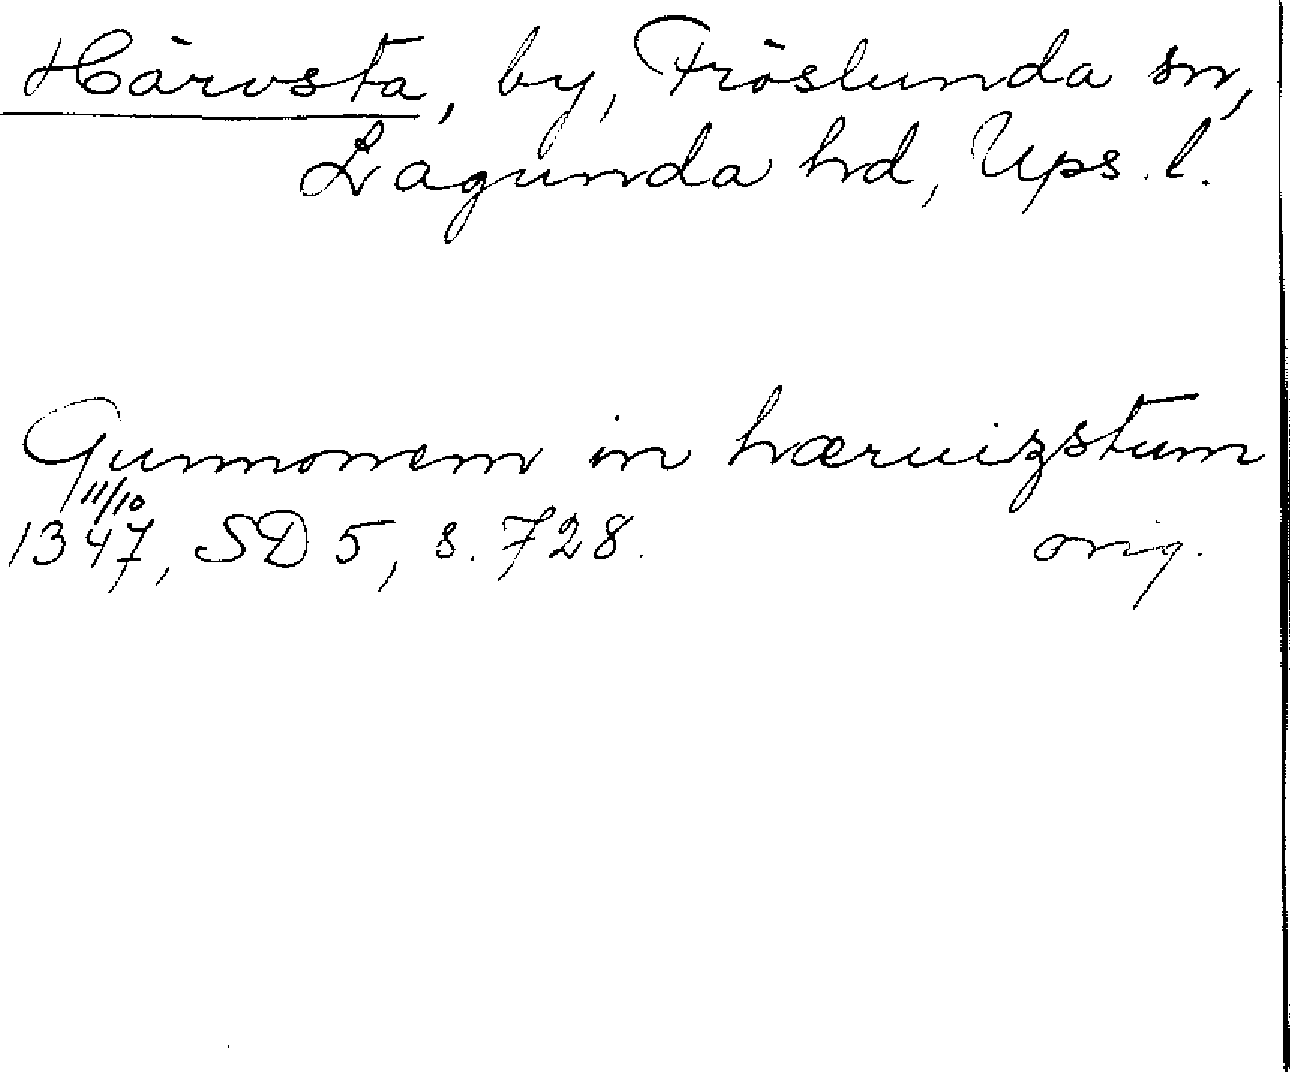 Härvsta, by, Fröslunda sn,
Lagunda hd, Ups. l.
Gunnonem in hæruizstum
11/10
1347, SD 5, s. 728. orig.